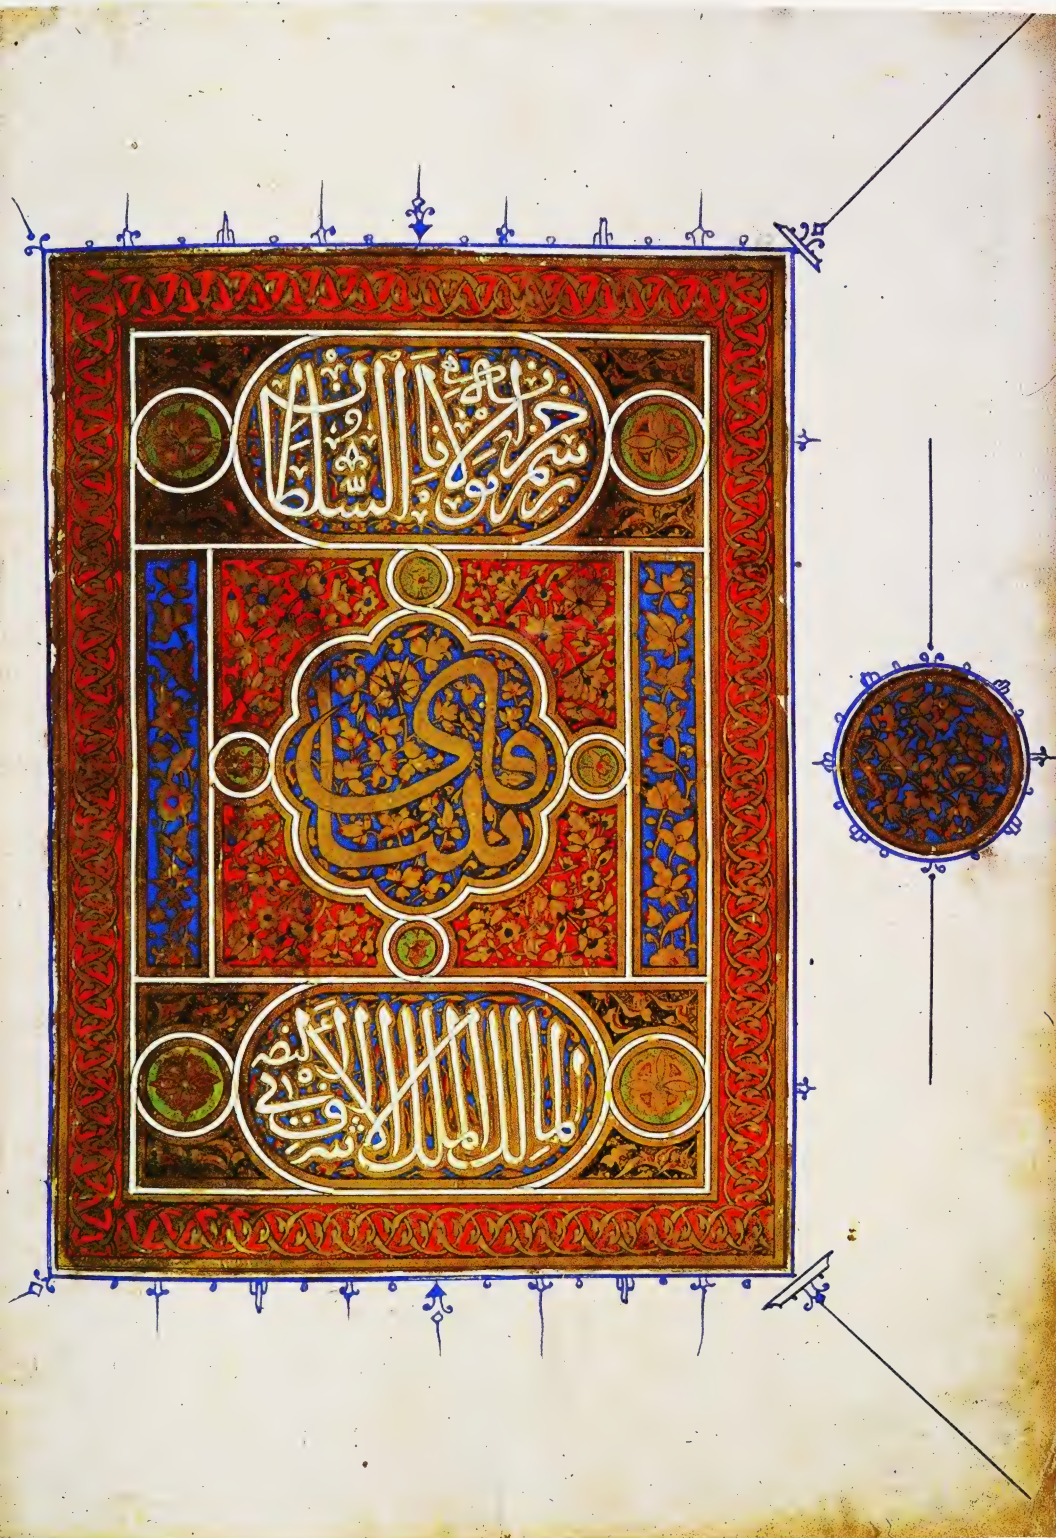 برسم خزانة مولانا السلطان
قايتباي
المالك الملك الأشرف أبي النصر